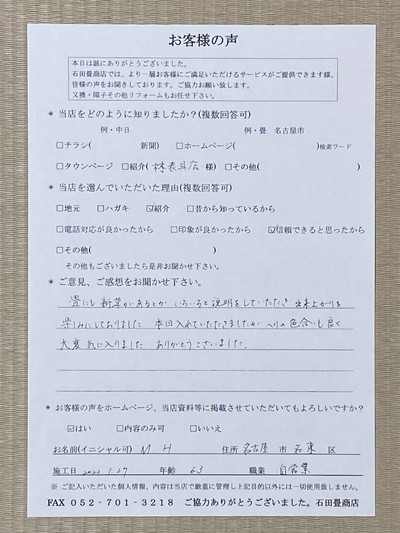 お客様の声
本日は誠にありがとうございました。
石田畳商店では、より一層お客様にご満足いただけるサービスがご提供できます様、
皆様の声をお聞きしております。ご協力お願い致します。
又襖・障子その他リフォームもお任せ下さい。
* 当店をどのように知りましたか？(複数回答可)
例・中日 例・畳 名古屋市
□チラシ( 新聞) □ホームページ( )検索ワード
□タウンページ ☑紹介(林表具店 様) □その他( )
* 当店を選んでいただいた理由(複数回答可)
□地元 □ハガキ ☑紹介 □昔から知っているから
□電話対応が良かったから □印象が良かったから ☑信頼できると思ったから
□その他( )
その他もございましたら是非お聞かせ下さい。
* ご意見、ご感想をお聞かせ下さい。
畳にも新草があるとか いろいろと説明をしていただき 出来上がりを
楽しみにしておりました 本日入れていただきましたが の色合いも良く
大変気に入りました ありがとうございました。
* お客様の声をホームページ、当店資料等に掲載させていただいてもよろしいですか？
☑はい □内容のみ可 □いいえ
お名前(イニシャル可) M H 住所 名古屋 市 名東 区
施工日 1.27 年齢 63 職業 自営業
※ ご記入いただいた個人情報、内容は当店で厳重に管理し上記目的以外には一切使用致しません。
FAX 052-701-3218 ご協力ありがとうございました。石田畳商店